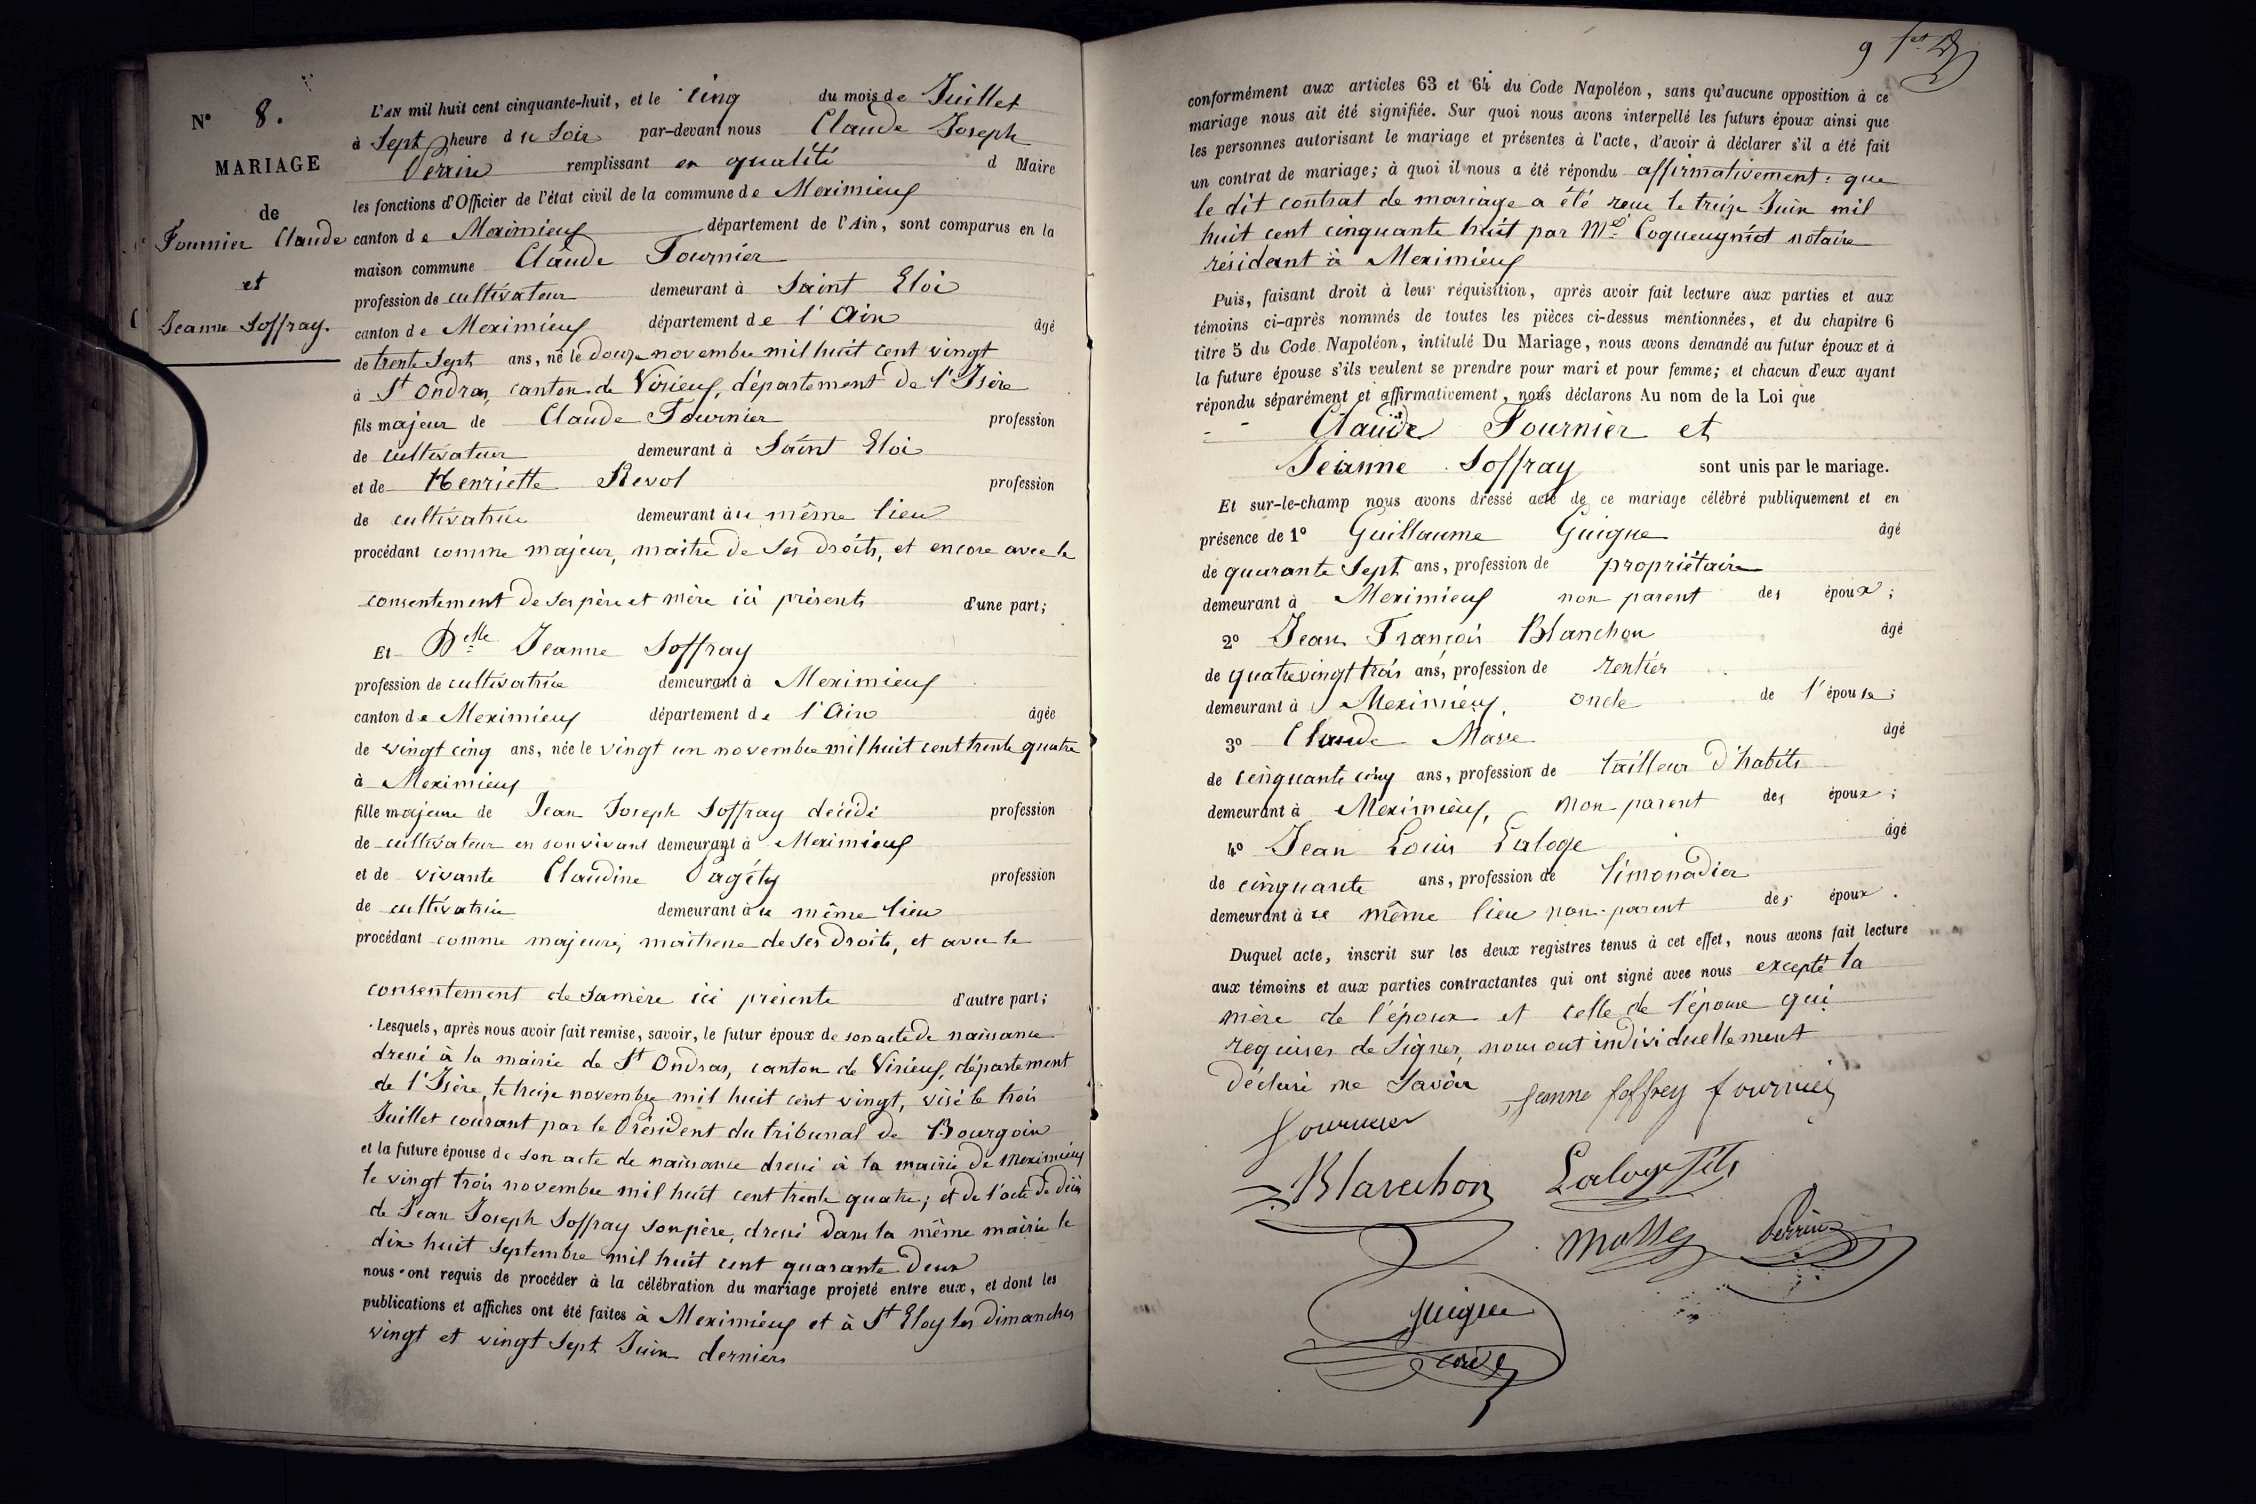 N° 8.
MARIAGE
de
Fournier Claude
et
Jeanne Soffray.
L'AN mil huit cent cinquante-huit, et le cinq du mois de Juillet
à Sept heure du Soir par-devant nous Claude Joseph
Perrin remplissant en qualité d Maire
les fonctions d'Officier de l'état civil de la commune de Meximieux
canton de Meximieux département de l'Ain, sont comparus en la
maison commune Claude Fournier
profession de cultivateur demeurant à Saint Eloi
canton de Meximieux département de l'Ain âgé
de trente Sept ans, né le douze novembre mil huit cent vingt
à St Ondras, canton de Virieux, département de l'Isère
fils majeur de Claude Fournier profession
de cultivateur demeurant à Saint Eloi
et de Henriette Revol profession
de cultivatrice demeurant au même lieu
procédant comme majeur, maitre de ses droits, et encore avec le
consentement de ses père et mère ici présents d'une part;
Et Delle Jeanne Soffray
profession de cultivatrice demeurant à Meximieux
canton de Meximieux département de l'Ain âgée
de vingt cinq ans, née le vingt un novembre mil huit cent trente quatre
à Meximieux
fille majeure de Jean Joseph Soffray décédé profession
de cultivateur en son vivant demeurant à Meximieux
et de vivante Claudine Pagéty profession
de cultivatrice demeurant au même lieu
procédant comme majeure, maitresse de ses droits, et avec le
consentement de sa mère ici présente d'autre part;
Lesquels, après nous avoir fait remise, savoir, le futur époux de son acte de naissance
dressé à la mairie de St Ondras, canton de Virieux, département
de l'Isère, le treize novembre mil huit cent vingt, visé le trois
Juillet courant par le Président du tribunal de Bourgoin
et la future épouse de son acte de naissance dressé à la mairie de Meximieux
le vingt trois novembre mil huit cent trente quatre; et de l'acte de décès
de Jean Joseph Soffray son père, dressé dans la même mairie le
dix huit Septembre mil huit cent quarante deux
nous ont requis de procéder à la célébration du mariage projeté entre eux, et dont les
publications et affiches ont été faites à Meximieux et à St Eloy les dimanches
vingt et vingt sept Juin derniers
9
conformément aux articles 63 et 64 du Code Napoléon, sans qu'aucune opposition à ce
mariage nous ait été signifiée. Sur quoi nous avons interpellé les futurs époux ainsi que
les personnes autorisant le mariage et présentes à l'acte, d'avoir à déclarer s'il a été fait
un contrat de mariage; à quoi il nous a été répondu affirmativement: que
le dit contrat de mariage a été reçu le treize Juin mil
huit cent cinquante huit par Me Coqueugniot notaire
résidant à Meximieux
Puis, faisant droit à leur réquisition, après avoir fait lecture aux parties et aux
témoins ci-après nommés de toutes les pièces ci-dessus mentionnées, et du chapitre 6
titre 5 du Code Napoléon, intitulé Du Mariage, nous avons demandé au futur époux et à
la future épouse s'ils veulent se prendre pour mari et pour femme; et chacun d'eux ayant
répondu séparément et affirmativement, nous déclarons Au nom de la Loi que
Claude Fournier et
Jeanne Soffray sont unis par le mariage.
Et sur-le-champ nous avons dressé acte de ce mariage célébré publiquement et en
présence de 1° Guillaume Guigue âgé
de quarante Sept ans, profession de propriétaire
demeurant à Meximieux non parent des époux;
2° Jean François Blanchon âgé
de quatrevingt trois ans, profession de rentier
demeurant à Meximieux, oncle de l'épouse;
3° Claude Masse âgé
de cinquante cinq ans, profession de tailleur d'habits
demeurant à Meximieux, non parent des époux;
4° Jean Louis Laloge âgé
de cinquante ans, profession de limonadier
demeurant à ce même lieu non parent des époux.
Duquel acte, inscrit sur les deux registres tenus à cet effet, nous avons fait lecture
aux témoins et aux parties contractantes qui ont signé avec nous excepté la
mère de l'époux et celle de l'épouse qui
requises de signer, nous ont individuellement
déclaré ne savoir Jeanne soffrey fournier
fournier
Blanchon Laloge fils
Masse Perrin
guigue